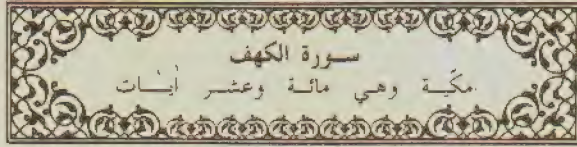 سورة الكهف
مكّية وهي مائة وعشر آيات